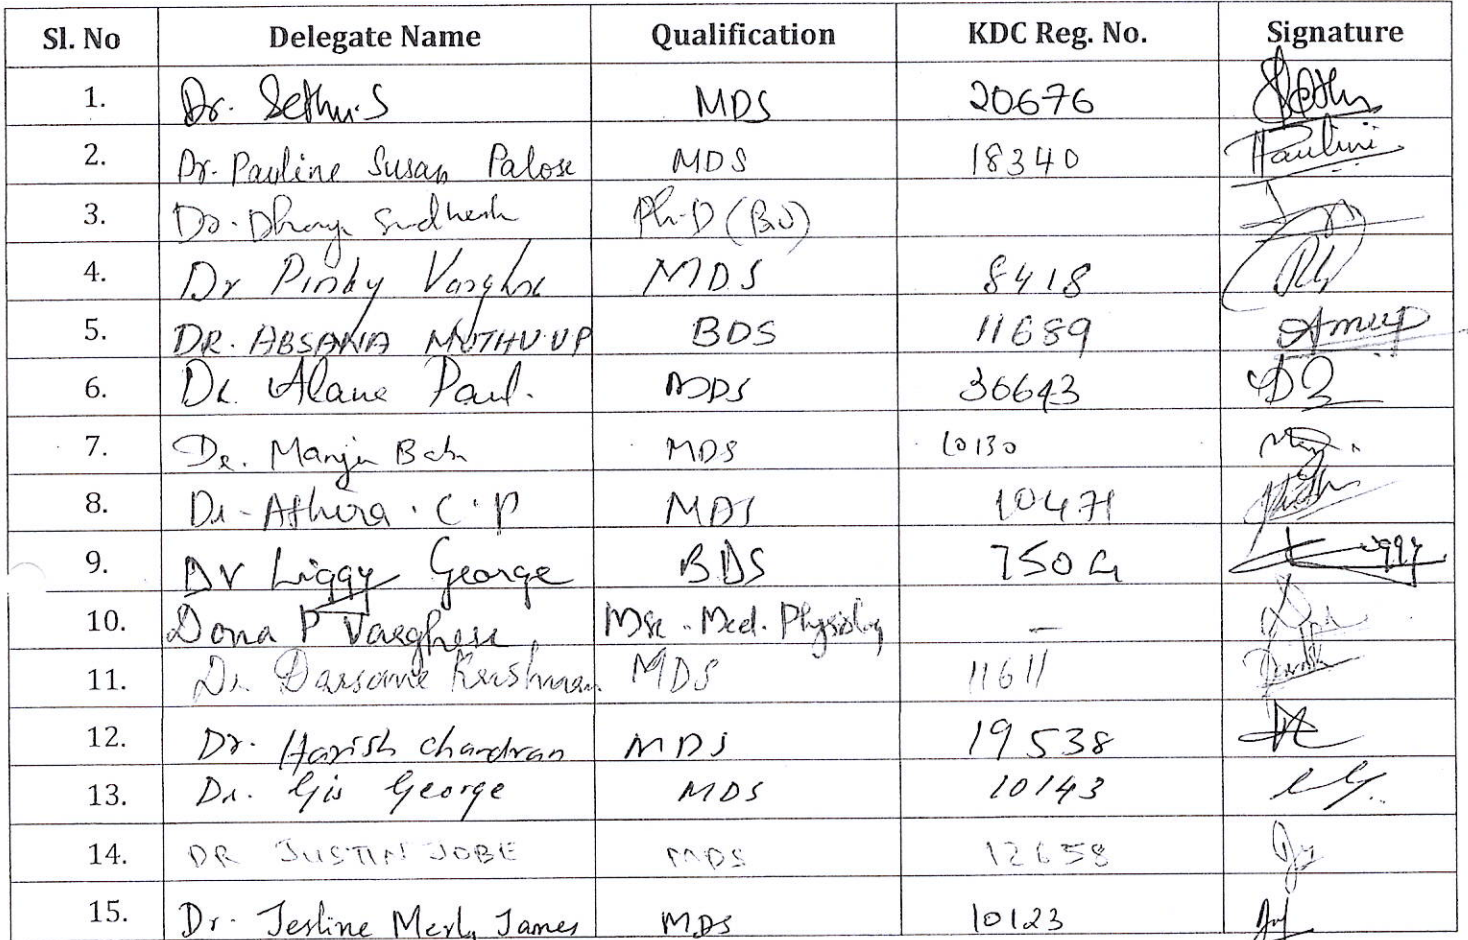 Sl. No Delegate Name Qualification KDC Reg. No. Signature
1. Dr. Sethu.S MDS 20676 Sethu
2. Dr. Pauline Susan Palose MDS 18340 Paulini
3. Dr. Dhanya Sudhesh Ph.D
4. Dr Pinky Varghse MDS 8418
5. DR. ABSANA MUTHU.U.P BDS 11689
6. Dr. Alane Paul. MDS 36643
7. Dr. Manju Babu MDS 10130
8. Dr. Athira. C. P MDS 10471
9. Dr Liggy George BDS Liggy
10. Dona P Varghese Msc. Med. Physiology –
11. Dr. Darsana Krishnan MDS 11611
12. Dr. Harish chandran MDS 19538
13. Dr. Gis George MDS 10143
14. DR JUSTIN JOBE MDS 12658
15. Dr. Jesline Merly James MDS 10123